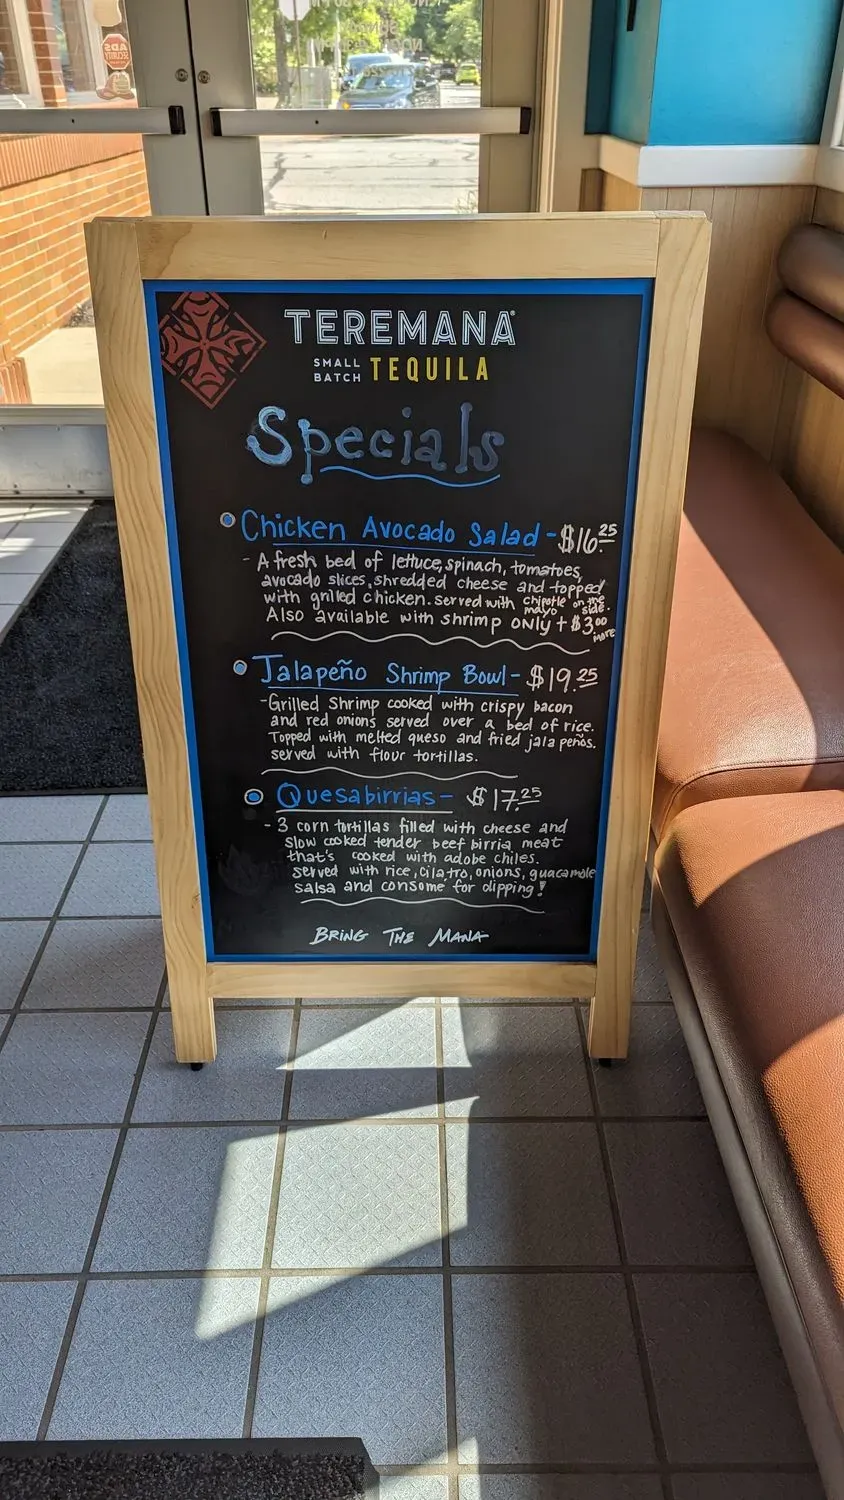 ADS
SECURITY
TEREMANA
SMALL BATCH TEQUILA
Specials
Chicken Avocado Salad - $16.25
- A fresh bed of lettuce, spinach, tomatoes,
avocado slices, shredded cheese and topped
with grilled chicken. served with chipotle mayo on the side.
Also available with shrimp only + $3.00 more
Jalapeño Shrimp Bowl - $19.25
- Grilled Shrimp cooked with crispy bacon
and red onions served over a bed of rice.
Topped with melted queso and fried jalapeños.
served with flour tortillas.
Quesabirrias - $17.25
- 3 corn tortillas filled with cheese and
slow cooked tender beef birria meat
that's cooked with adobe chiles.
served with rice, cilatro, onions, guacamole
salsa and consome for dipping!
BRING THE MANA